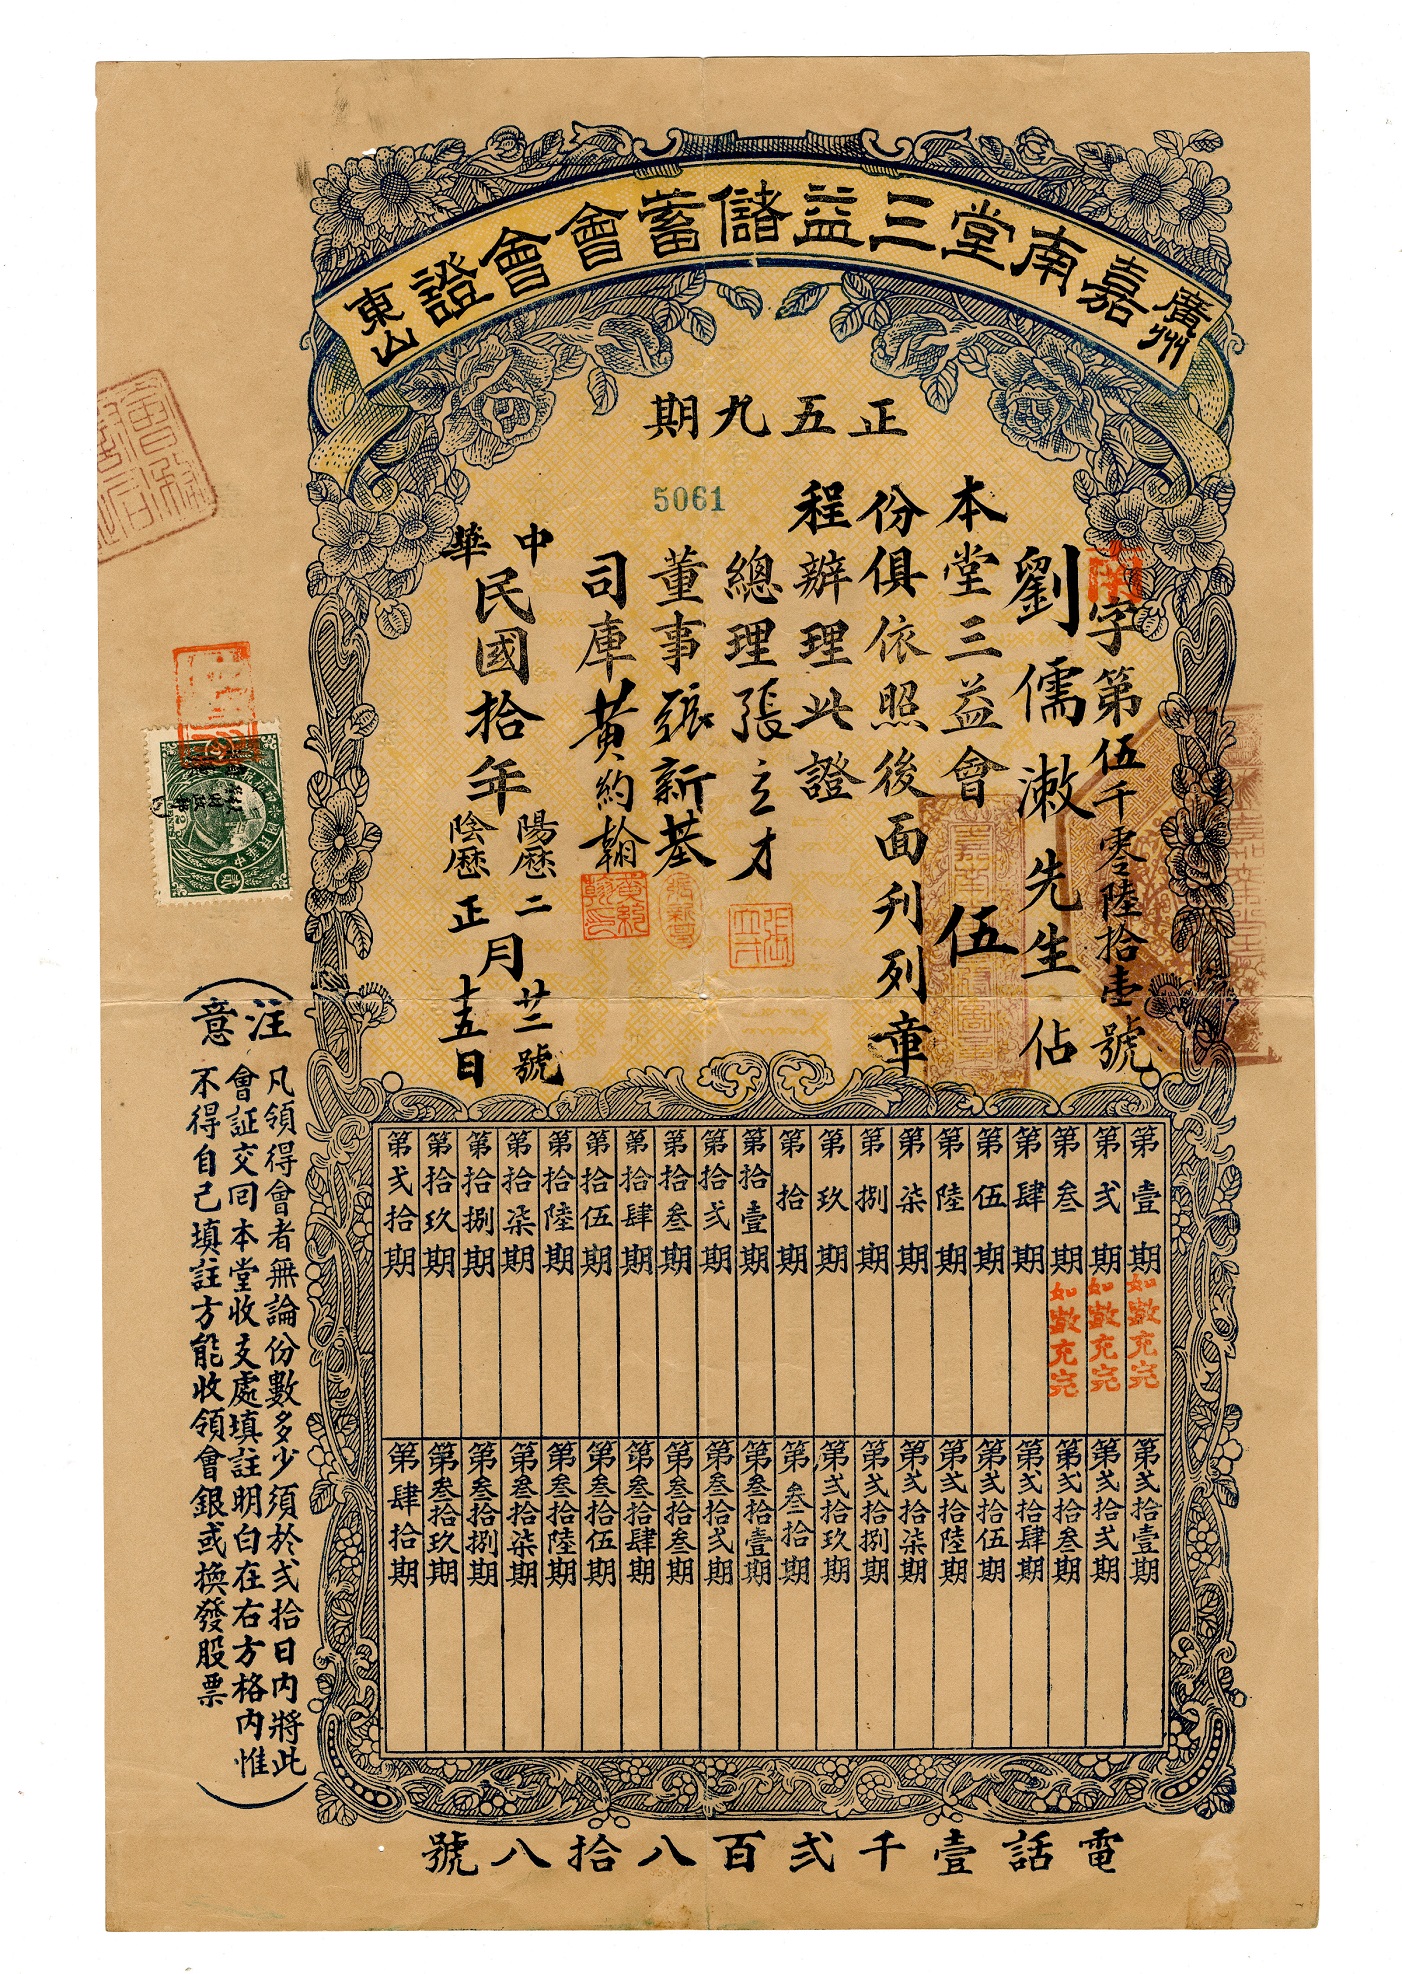 廣州
嘉南堂三益儲蓄會會證
東山
正五九期
5061
南字第伍千零陸拾壹號
劉儒漱先生佔
本堂三益會伍
份俱依照後面刋列章
程辦理此證
總理張立才
董事張新基
司庫黃約翰
中華民國拾年陽歷二月廿二號
陰歷正月十五日
第壹期如數充完
第弍期如數充完
第叁期如數充完
第肆期
第伍期
第陸期
第柒期
第捌期
第玖期
第拾期
第拾壹期
第拾弍期
第拾叁期
第拾肆期
第拾伍期
第拾陸期
第拾柒期
第拾捌期
第拾玖期
第弍拾期
第弍拾壹期
第弍拾弍期
第弍拾叁期
第弍拾肆期
第弍拾伍期
第弍拾陸期
第弍拾柒期
第弍拾捌期
第弍拾玖期
第叁拾期
第叁拾壹期
第叁拾弍期
第叁拾叁期
第叁拾肆期
第叁拾伍期
第叁拾陸期
第叁拾柒期
第叁拾捌期
第叁拾玖期
第肆拾期
注意
凡領得會者無論份數多少須於弍拾日內將此
會証交回本堂收支處填註明白在右方格內惟
不得自己填註方能收領會銀或換發股票
電話壹千弍百八拾八號